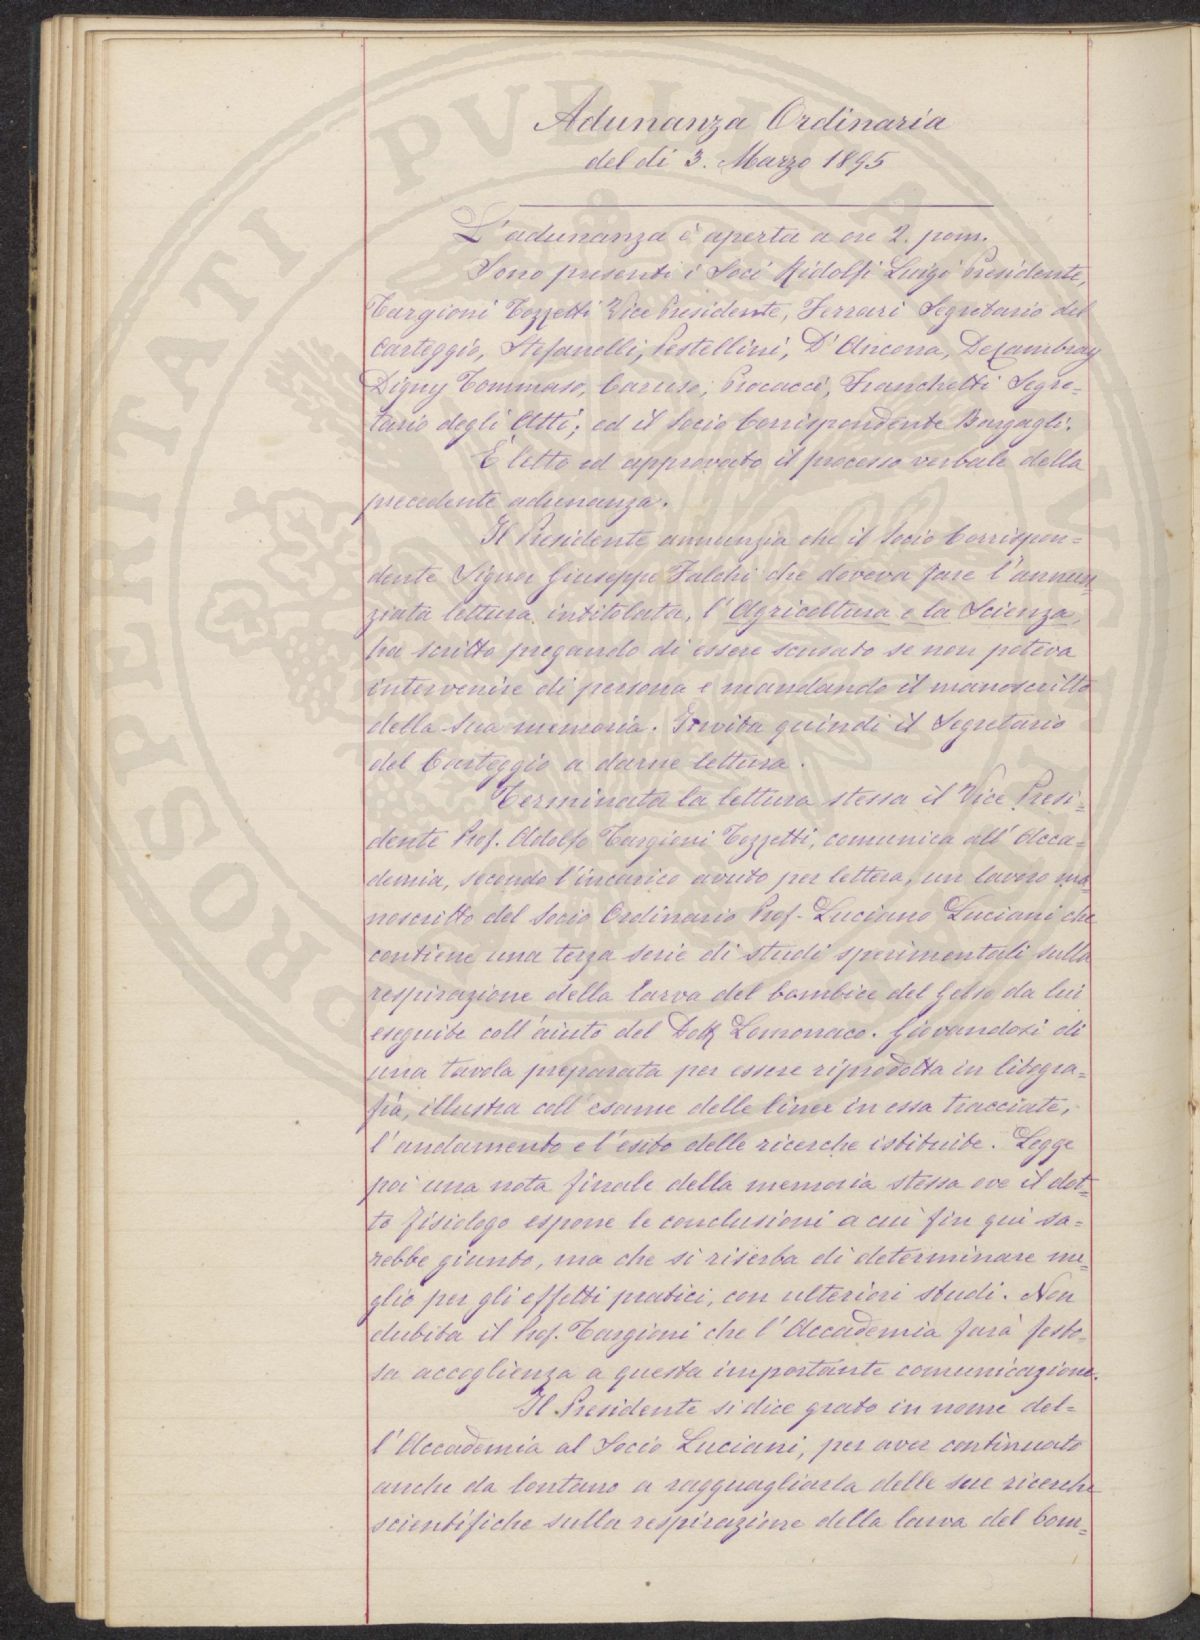 Adunanza Ordinaria
del dì 3. Marzo 1895
L'adunanza è aperta a ore 2. pom.
Sono presenti i Soci Ridolfi Luigi Presidente,
Targioni Tozzetti Vice Presidente, Ferrari Segretario del
Carteggio, Stefanelli, Pestellini, D'Ancona, DeCambray
Digny Tommaso, Caruso, Procacci, Franchetti Segre=
tario degli Atti; ed il Socio Corrispondente Bargagli.
È letto ed approvato il processo verbale della
precedente adunanza.
Il Presidente annunzia che il Socio Corrispon=
dente Signor Giuseppe Falchi che doveva fare l'annun
ziata lettura intitolata, l'Agricoltura e la Scienza,
ha scritto pregando di essere scusato se non poteva
intervenire di persona e mandando il manoscritto
della sua memoria. Invita quindi il Segretario
del Carteggio a darne lettura.
Terminata la lettura stessa il Vice Presi=
dente Prof. Adolfo Targioni Tozzetti, comunica all'Acca=
demia, secondo l'incarico avuto per lettera, un lavoro ma
noscritto del Socio Ordinario Prof. Luciano Luciani che
contiene una terza serie di studi sperimentali sulla
respirazione della larva del bombice del Gelso da lui
eseguite coll'aiuto del Dott Lomonaco. Giovandosi di
una tavola preparata per essere riprodotta in litogra=
fia, illustra coll'esame delle linee in essa tracciate,
l'andamento e l'esito delle ricerche istituite. Legge
poi una nota finale della memoria stessa ove il dot=
to fisiologo espone le conclusioni a cui fin qui sa=
rebbe giunto, ma che si riserba di determinare me=
glio per gli effetti pratici, con ulteriori studi. Non
dubita il Prof. Targioni che l'Accademia farà festo=
sa accoglienza a questa importante comunicazione.
Il Presidente si dice grato in nome del=
l'Accademia al Socio Luciani, per aver continuato
anche da lontano a ragguagliarla delle sue ricerche
scientifiche sulla respirazione della larva del bom=
PROSPERITATI PVBLICAE AVGENDAE